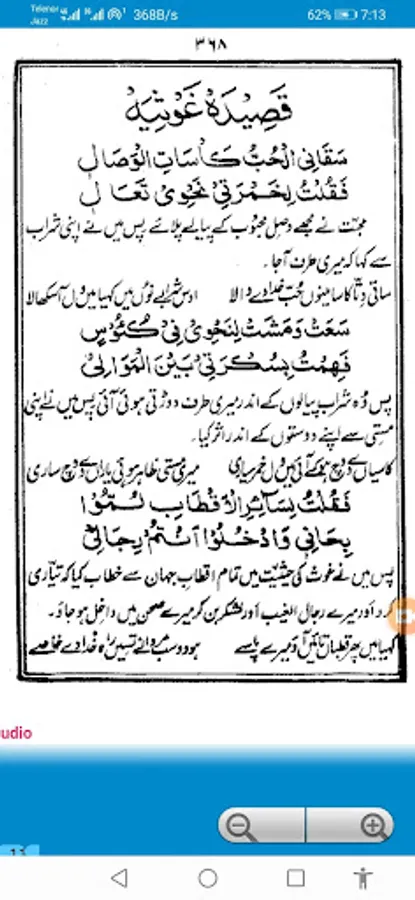 Telenor
Jazz
368B/s
62%
7:13
٣٦٨
قَصِيدَهْ غَوْثِيَه
سَقَانِي الْحُبُّ كَأْسَاتِ الْوِصَالِ
فَقُلْتُ لِخَمْرَتِيْ نَحْوِيْ تَعَالِ
محبّت نے مجھے وصل محبوب کے پیالے پلائے پس میں نے اپنی شراب
سے کہا کہ میری طرف آجا۔
ساقی دِتا کاسا مینوں حُب خدا دے والا اوس شراب نوں میں کہیا میں ول آ سکھالا
سَعَتْ وَمَشَتْ لِنَحْوِيْ فِيْ كُئُوْسٍ
فَهِمْتُ بِسُكْرَتِيْ بَيْنَ الْمَوَالِيْ
پس وُہ شراب پیالوں کے اندر میری طرف دوڑتی ہوئی آئی پس میں نے اپنی
مستی سے اپنے دوستوں کے اندر اثر کیا۔
کاسیاں دے وچ میں ول خمر پیاری میری مستی ظاہر ہوئی یاراں دے وچ ساری
فَقُلْتُ لِسَآئِرِ الْاَقْطَابِ لُمُّوْا
بِحَانِيْ وَادْخُلُوْا اَنْتُمْ رِجَالِيْ
پس میں نے غوث کی حیثیت میں تمام اقطاب جہان سے خطاب کیا کہ تیاری
کرو اور میرے رجال الغیب اور لشکر بن کر میرے صحن میں داخل ہو جاؤ۔
کہیا میں پھر قطباں تائیں آؤ میرے پاسے ہو دو سب مردانے تسیں راہ خدا دے خاصے
udio
11